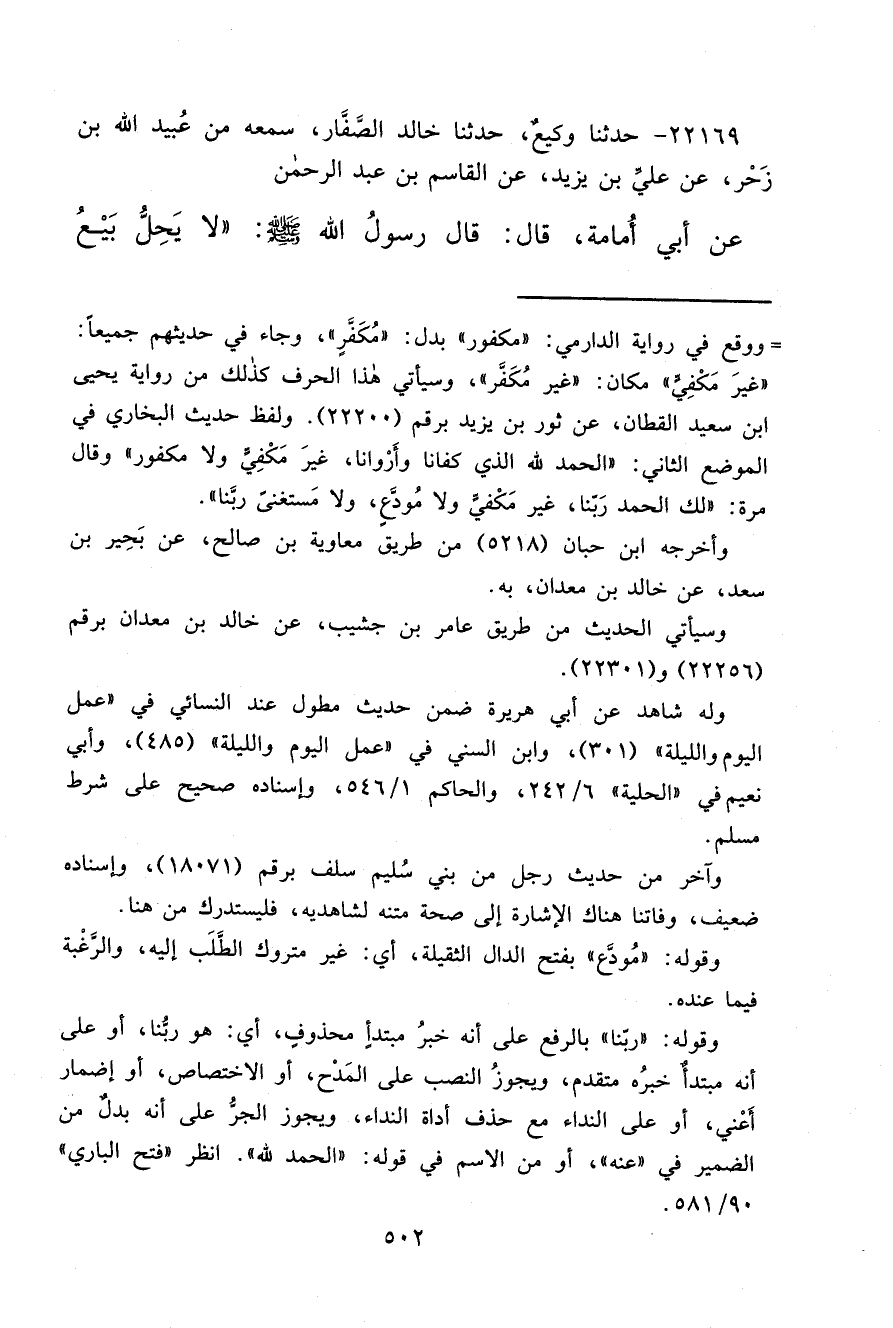 ٢٢١٦٩- حدثنا وكيعٌ، حدثنا خالد الصَّفَّار، سمعه من عُبيد الله بن
زَحْر، عن عليِّ بن يزيد، عن القاسم بن عبد الرحمٰن
عن أبي أُمامة، قال: قال رسولُ الله ﷺ: «لا يَحِلُّ بَيْعُ
= ووقع في رواية الدارمي: «مكفور» بدل: «مُكَفَّرٍ»، وجاء في حديثهم جميعاً:
«غيرَ مَكْفِيٍّ» مكان: «غير مُكَفَّر»، وسيأتي هٰذا الحرف كذٰلك من رواية يحيى
ابن سعيد القطان، عن ثور بن يزيد برقم (٢٢٢٠٠). ولفظ حديث البخاري في
الموضع الثاني: «الحمد لله الذي كفانا وأَرْوانا، غيرَ مَكْفِيٍّ ولا مكفور» وقال
مرة: «لك الحمد رَبّنا، غير مَكْفيٍّ ولا مُودَّعٍ، ولا مَستغنىّ ربَّنا».
وأخرجه ابن حبان (٥٢١٨) من طريق معاوية بن صالح، عن بَحِير بن
سعد، عن خالد بن معدان، به.
وسيأتي الحديث من طريق عامر بن جشيب، عن خالد بن معدان برقم
(٢٢٢٥٦) و(٢٢٣٠١).
وله شاهد عن أبي هريرة ضمن حديث مطول عند النسائي في «عمل
اليوم والليلة» (٣٠١)، وابن السني في «عمل اليوم والليلة» (٤٨٥)، وأبي
نعيم في «الحلية» ٢٤٢/٦، والحاكم ٥٤٦/١، وإسناده صحيح على شرط
مسلم.
وآخر من حديث رجل من بني سُليم سلف برقم (١٨٠٧١)، وإسناده
ضعيف، وفاتنا هناك الإشارة إلى صحة متنه لشاهديه، فليستدرك من هنا.
وقوله: «مُودَّع» بفتح الدال الثقيلة، أي: غير متروك الطَّلَب إليه، والرَّغْبة
فيما عنده.
وقوله: «ربّنا» بالرفع على أنه خبرُ مبتدأٍ محذوفٍ، أي: هو ربُّنا، أو على
أنه مبتدأٌ خبرُه متقدم، ويجوزُ النصب على المَدْح، أو الاختصاص، أو إضمار
أَعْني، أو على النداء مع حذف أداة النداء، ويجوز الجرُّ على أنه بدلٌ من
الضمير في «عنه»، أو من الاسم في قوله: «الحمد لله». انظر «فتح الباري»
٥٨١/٩٠.
٥٠٢